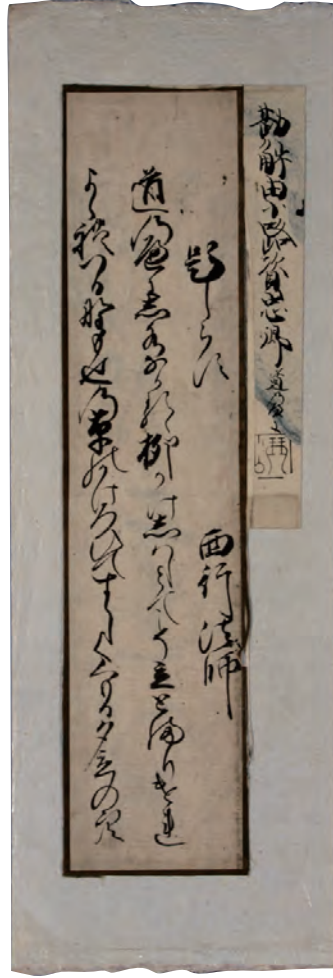 勘解由小路資忠卿 道のへに
題しらす
西行法師
道のへにし水なかるゝ柳かけしはしとてこそ立とまりつれ
よられつる野もせの草のかけろひてすゝしくくもる夕立の空